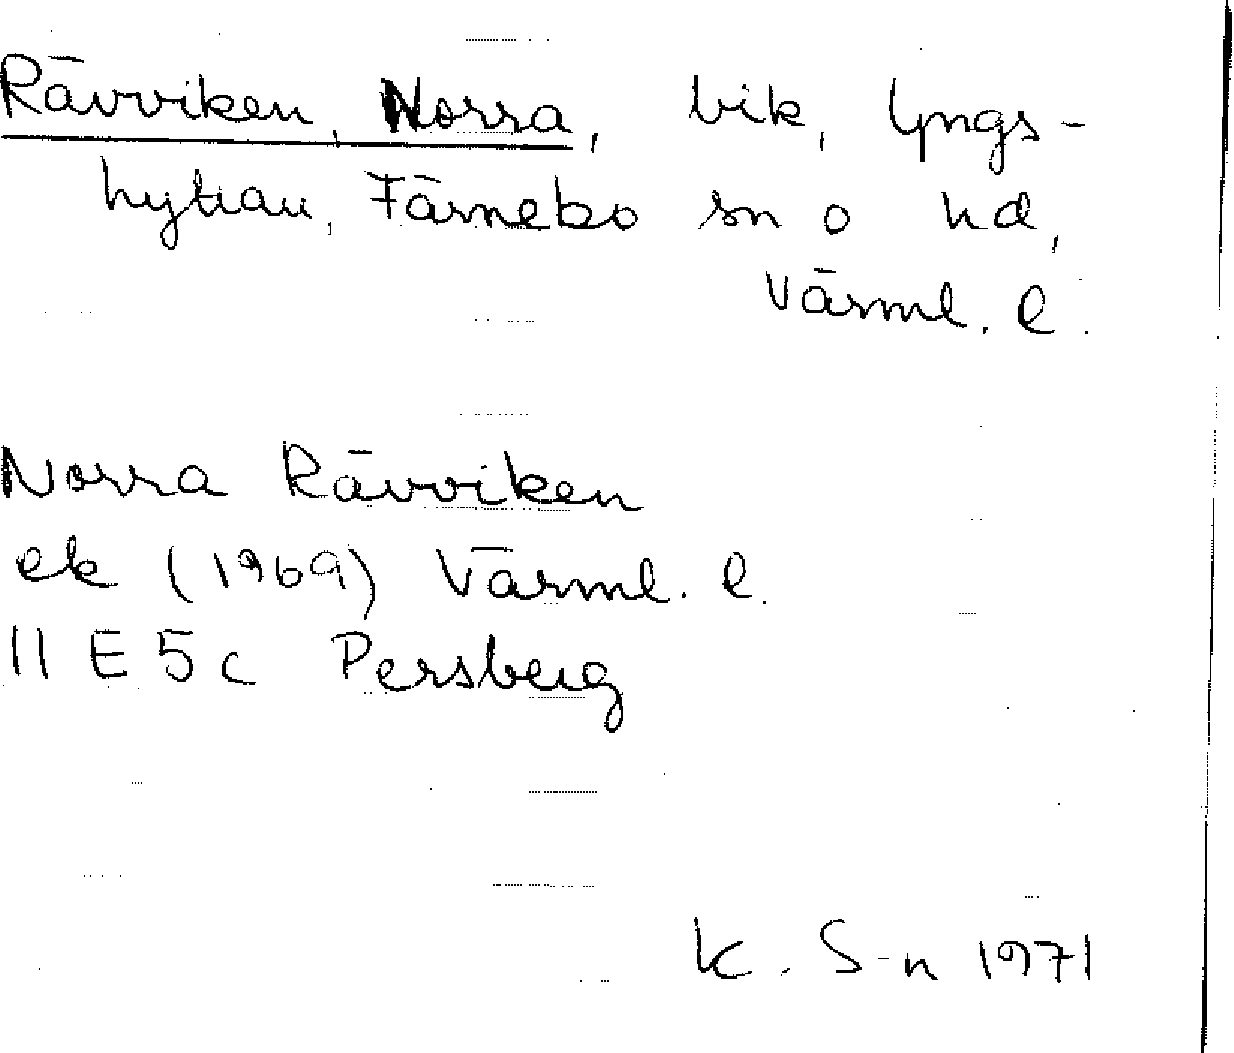 Rävviken, Norra, vik, Yngs-
hyttan, Färnebo sn o hd,
Värml. l.
Norra Rävviken
ek (1969) Värml. l.
11 E 5 c Persberg
K. S-n 1971